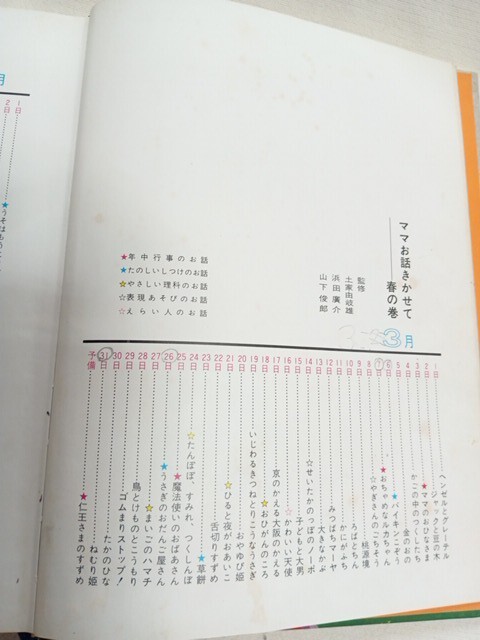 ママお話きかせて
春の巻
監修
土家由岐雄
浜田廣介
山下俊郎
★年中行事のお話
★たのしいしつけのお話
★やさしい理科のお話
☆表現あそびのお話
☆えらい人のお話
3月
1日 ヘンゼルとグレーテル
2日 ジャックと豆の木
3日 ★ママのおひなさま
4日 金のおの
5日 かごの中のつくしたち
6日 ★バイキンこぞう
7日 ★おちゃめなルカちゃん
8日 ☆やぎさんのごちそう
9日 桃源境
10日 ろばとちん
11日
12日 みつばちマーヤ
13日 大きなかぶ
14日 ☆せいたかのっぽの
15日 子どもと大男
16日 ☆かわいい天使
17日 京のかえる大阪のかえる
18日 ★おひがんのころ
19日 いじわるきつねとりこうなうさぎ
20日 おやゆび姫
21日 ☆ひると夜がおあいこ
22日 舌切りすずめ
23日 ★草餅
24日 ☆たんぽぽ、すみれ、つくしんぼ
25日 ★魔法使いのおばあさん
26日 ★うさぎのおだんご屋さん
27日 ★まいごのハマチ
28日 鳥とけものとこうもり
29日 ゴムまりストップ!
30日 たかのひな
31日 ねむり姫
予備 ★仁王さまのすずめ
月
1日
2日 ★うそはもう